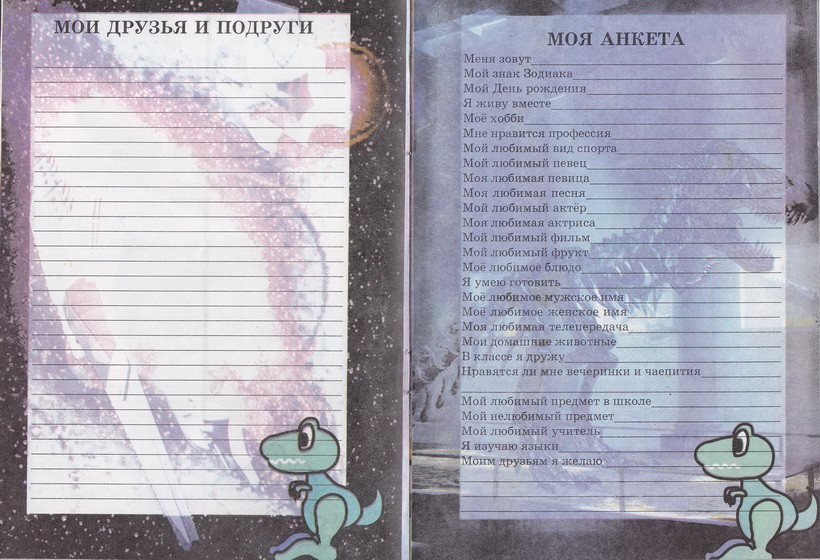 МОИ ДРУЗЬЯ И ПОДРУГИ
МОЯ АНКЕТА
Меня зовут
Мой знак Зодиака
Мой День рождения
Я живу вместе
Моё хобби
Мне нравится профессия
Мой любимый вид спорта
Мой любимый певец
Моя любимая певица
Моя любимая песня
Мой любимый актёр
Моя любимая актриса
Мой любимый фильм
Мой любимый фрукт
Моё любимое блюдо
Я умею готовить
Моё любимое мужское имя
Моё любимое женское имя
Моя любимая телепередача
Мои домашние животные
В классе я дружу
Нравятся ли мне вечеринки и чаепития
Мой любимый предмет в школе
Мой нелюбимый предмет
Мой любимый учитель
Я изучаю языки
Моим друзьям я желаю